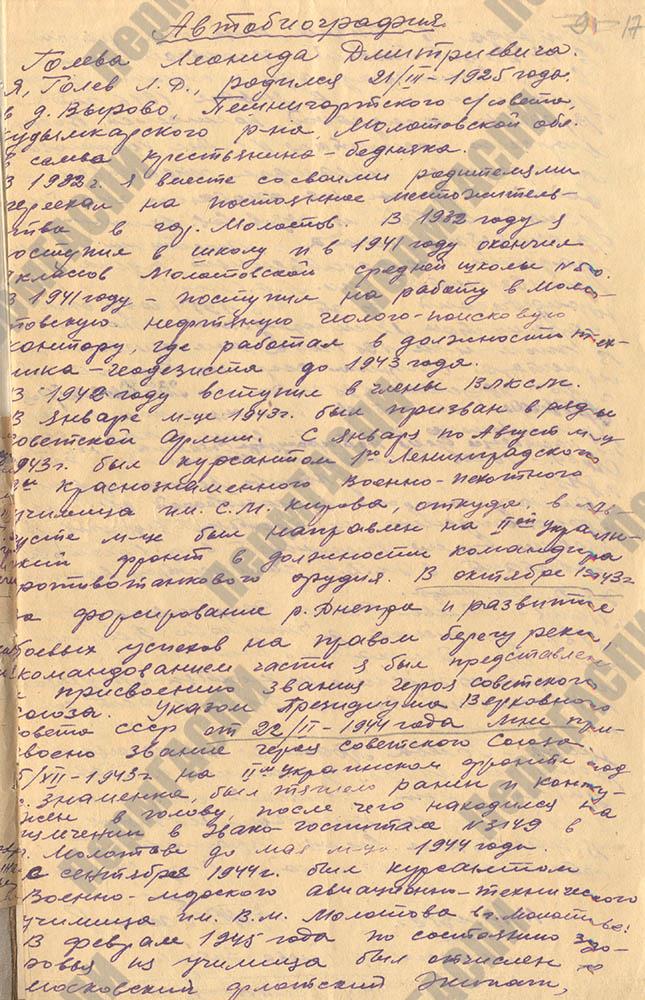 9 17
Автобиография
Голева Леонида Дмитриевича.
Я, Голев Л.Д., родился 21/III-1925 года
в д. Вырово, Пешнигортского с/совета,
кудымкарского р-на, Молотовской обл.
В семье крестьянина-бедняка.
В 1932 г. я вместе со своими родителями
переехал на постоянное местожитель-
ство в гор. Молотов. В 1932 году я
поступил в школу и в 1941 году окончил
классов Молотовской средней школы
В 1941 году - поступил на работу в Моло-
товскую нефтяную геолого-поисковую
контору, где работал в должности тех-
ника-геодезиста до 1943 года.
В 1942 году вступил в члены ВЛКСМ.
В январе м-це 1943 г. был призван в ряды
советской армии. С января по Август м-ц
1943 г. был курсантом 1го Ленинградского
краснознаменного Военно-пехотного
училища им. С.М. Кирова, откуда, в ав-
густе м-це был направлен на IIой украин-
ский фронт в должности командира
противотанкового орудия. В октябре 1943 г
за форсирование р. Днепра и развитие
боевых успехов на правом берегу реки,
командованием части я был представлен
к присвоению звания героя советского
союза. Указом Президиума Верховного
совета СССР от 22/II-1944 года мне при-
своено звание героя советского Союза.
5/XII-1943 г. на IIом украинском фронте под
г. Знаменка, был тяжело ранен и конту-
жен в голову, после чего находился на
излечении в Эвако-госпитале №3149 в
г. Молотове до мая м-ца 1944 года.
с сентября 1944 г. был курсантом
Военно-морского авиационно-технического
училища им. В.М. Молотова в г. Молотове.
В феврале 1945 года по состоянию здо-
ровья из училища был отчислен в
московский флотский Экипаж,
ПермГАСПИ